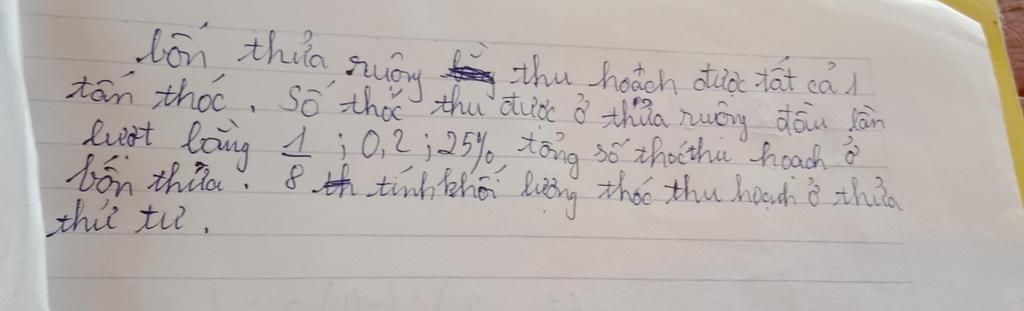 bốn thửa ruộng thu hoạch được tất cả 1
tấn thóc. Số thóc thu được ở thửa ruộng đầu lần
lượt bằng 1/8 ; 0,2 ; 25% tổng số thóc thu hoạch ở
bốn thửa. tính khối lượng thóc thu hoạch ở thửa
thứ tư.